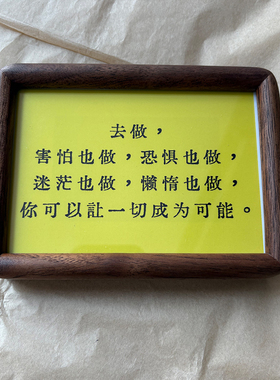 去做，
害怕也做，恐惧也做，
迷茫也做，懒惰也做，
你可以让一切成为可能。